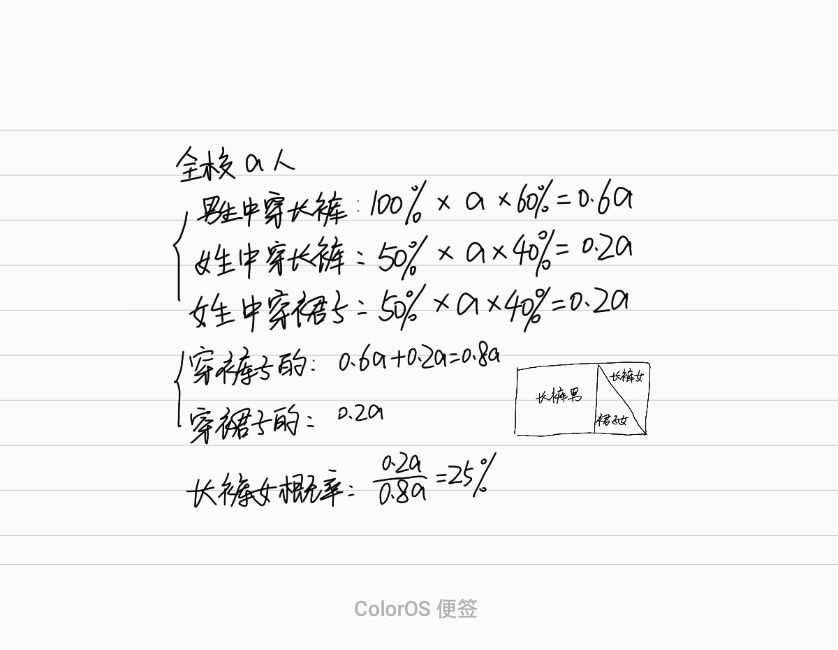 全校 a 人
男生中穿长裤:100% × a × 60% = 0.6a
女生中穿长裤:50% × a × 40% = 0.2a
女生中穿裙子:50% × a × 40% = 0.2a
穿裤子的: 0.6a+0.2a=0.8a
穿裙子的: 0.2a
长裤男
长裤女
裙子女
长裤女概率: 0.2a/0.8a = 25%
ColorOS 便签